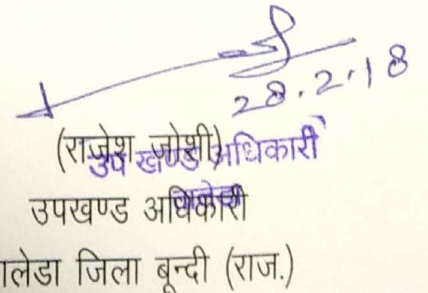 28.2.18
(राजेश जोशी)
उप खण्ड अधिकारी
उपखण्ड अधिकारी
ालेडा जिला बून्दी (राज.)